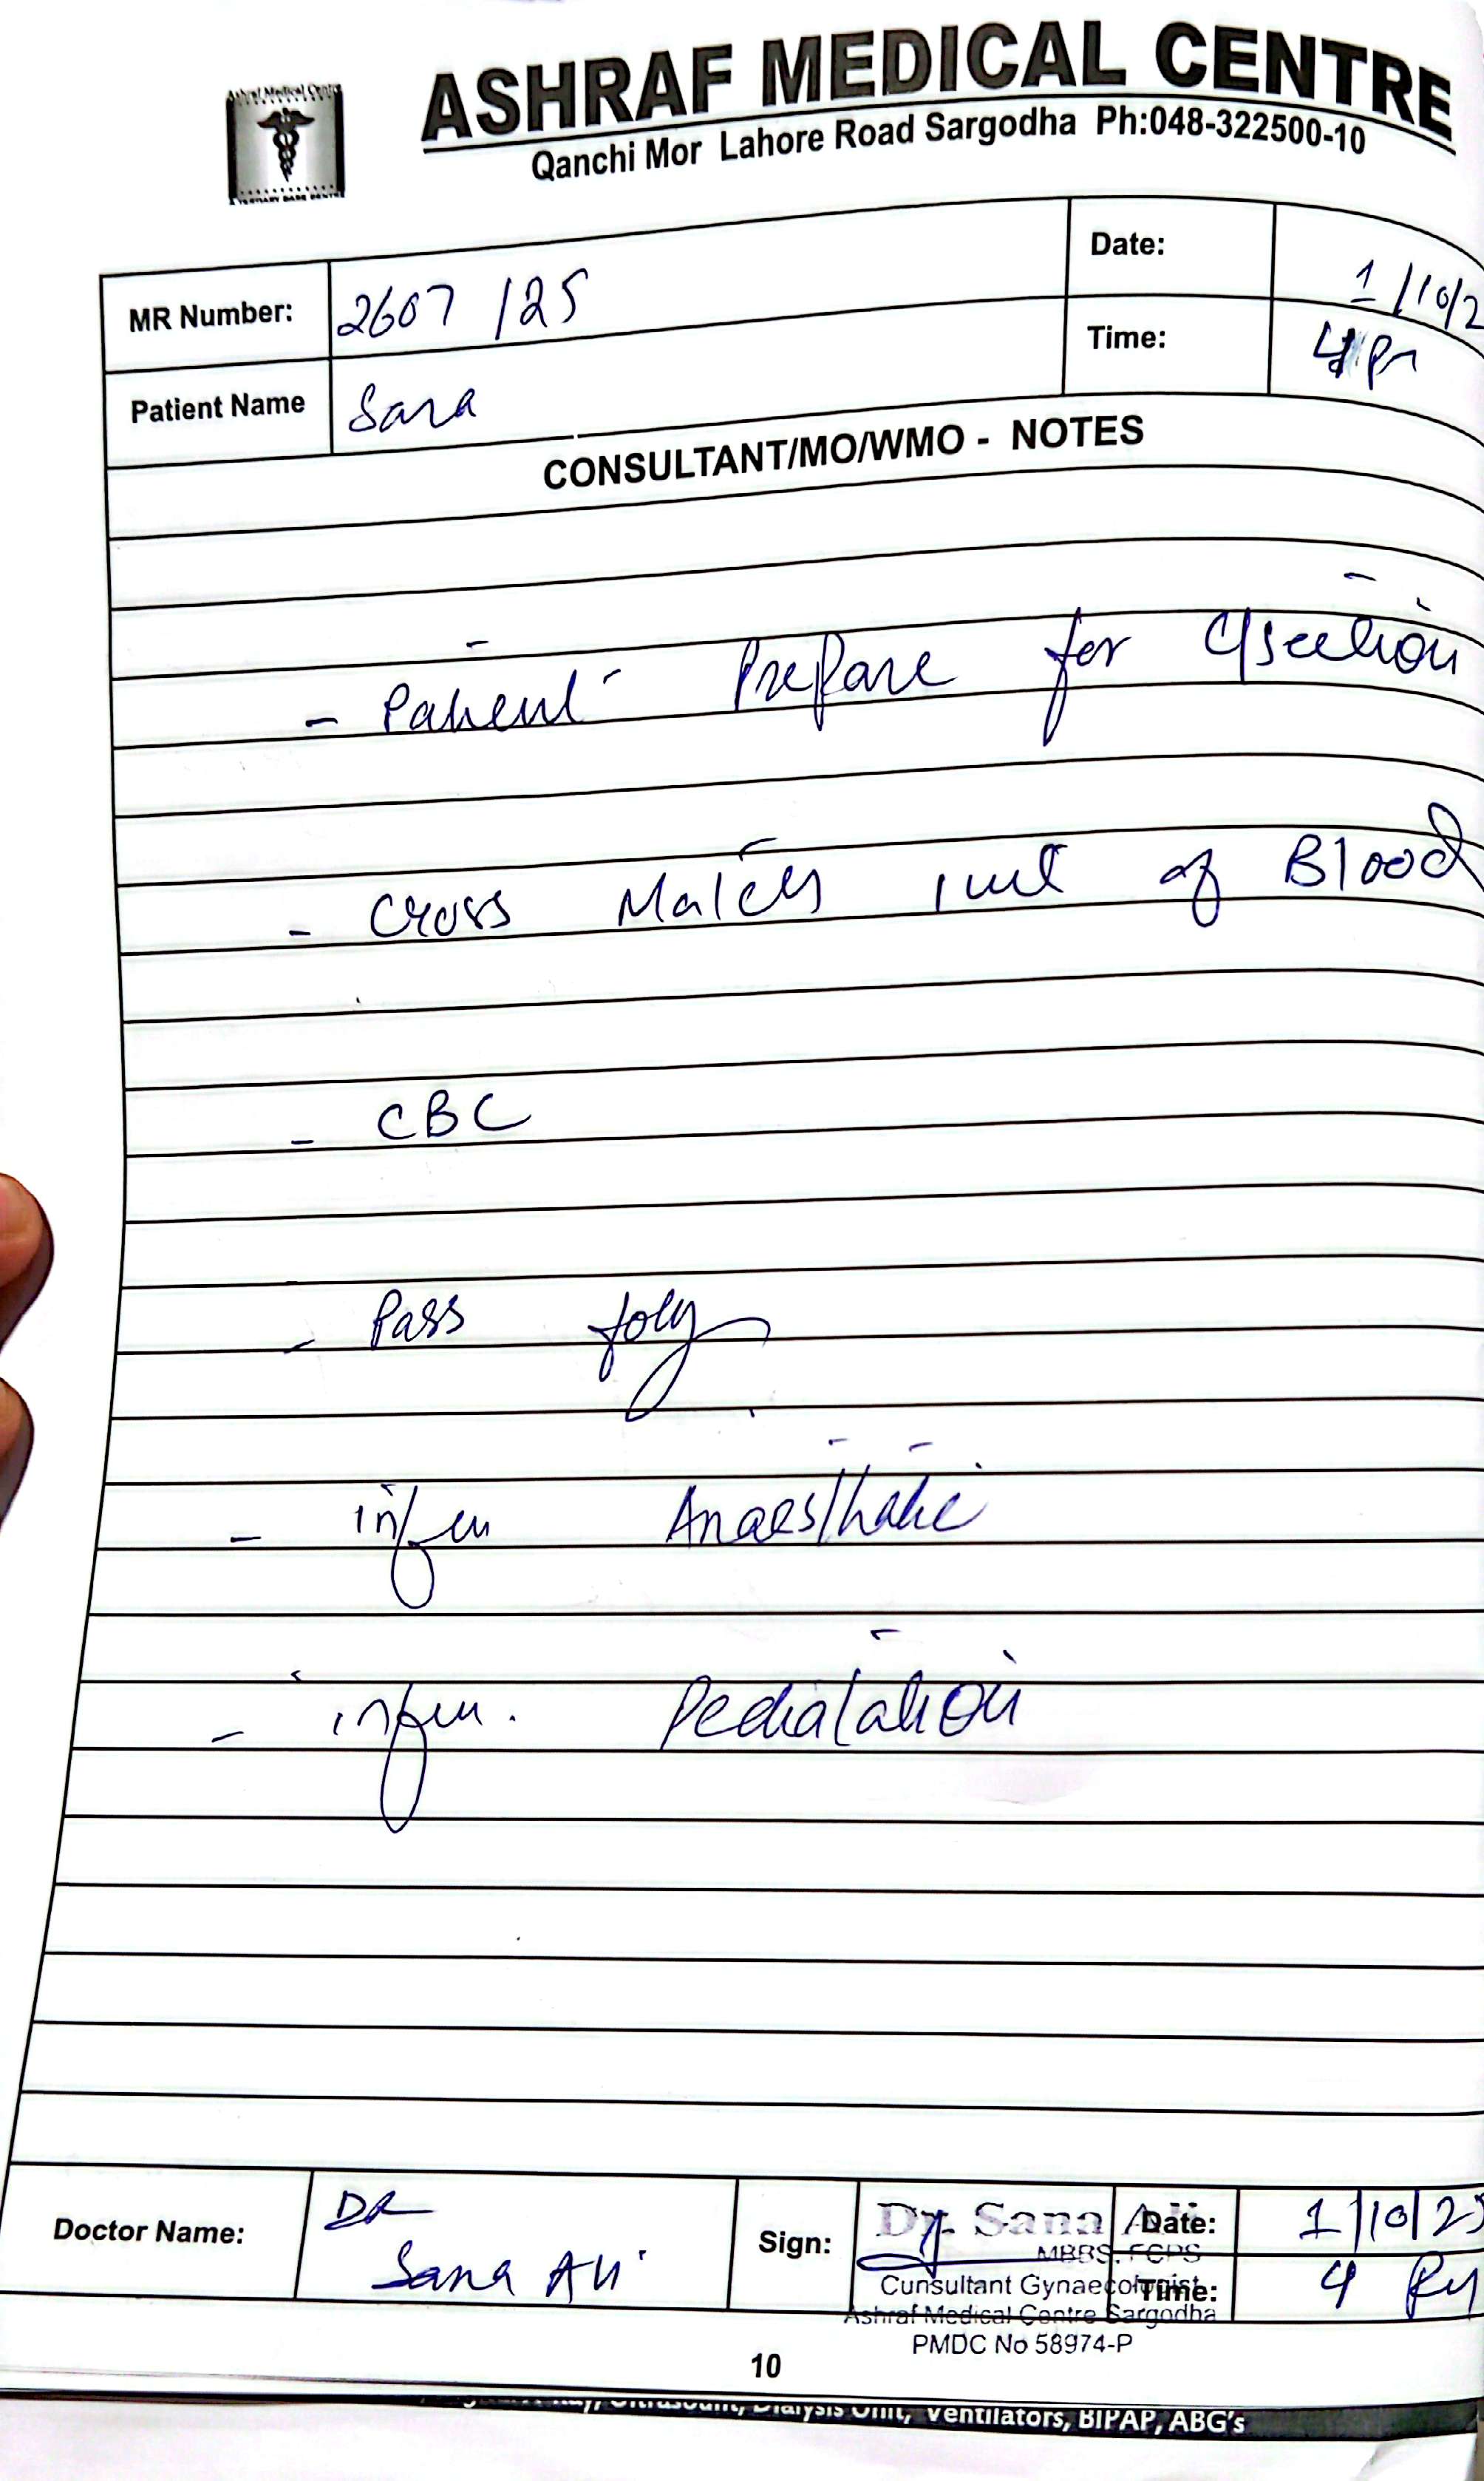 Ashraf Medical Centre
A TERTIARY CARE CENTRE
ASHRAF MEDICAL CENTRE
Qanchi Mor Lahore Road Sargodha Ph:048-322500-10
MR Number: 2607 /25
Date: 1/10/2
Patient Name Sara
Time: 4 Pm
CONSULTANT/MO/WMO - NOTES
- Patient Prepare for C/section
- Cross Match 1 unit of Blood
- CBC
- Pass foly
- inform Anaesthatic
- inform. Pediatation
Doctor Name: DR Sana Ali
Sign: Dr. Sana Ali
MBBS, FCPS
Cunsultant Gynaecologist
Ashraf Medical Centre Sargodha
PMDC No 58974-P
Date: 1/10/25
Time: 4 Pm
10
Dialysis Unit, Ventilators, BIPAP, ABG's